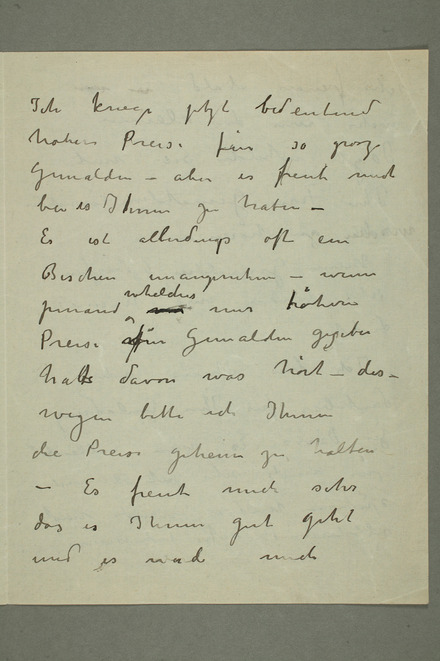 Ich kriege jetzt bedeutend
hohere Preise für so groze
Gemalden – aber es freut mich
bei es Ihnen zu haben –
Es ist allerdings oft ein
Bischen unangenehm – wenn
jemand welches mir höhere
Preise für Gemalden gegeben
hat davon was hört – des-
wegen bitte ich Ihnen
die Preise geheim zu halten
– Es freut mich sehr
das es Ihnen gut geht
und es wird mich